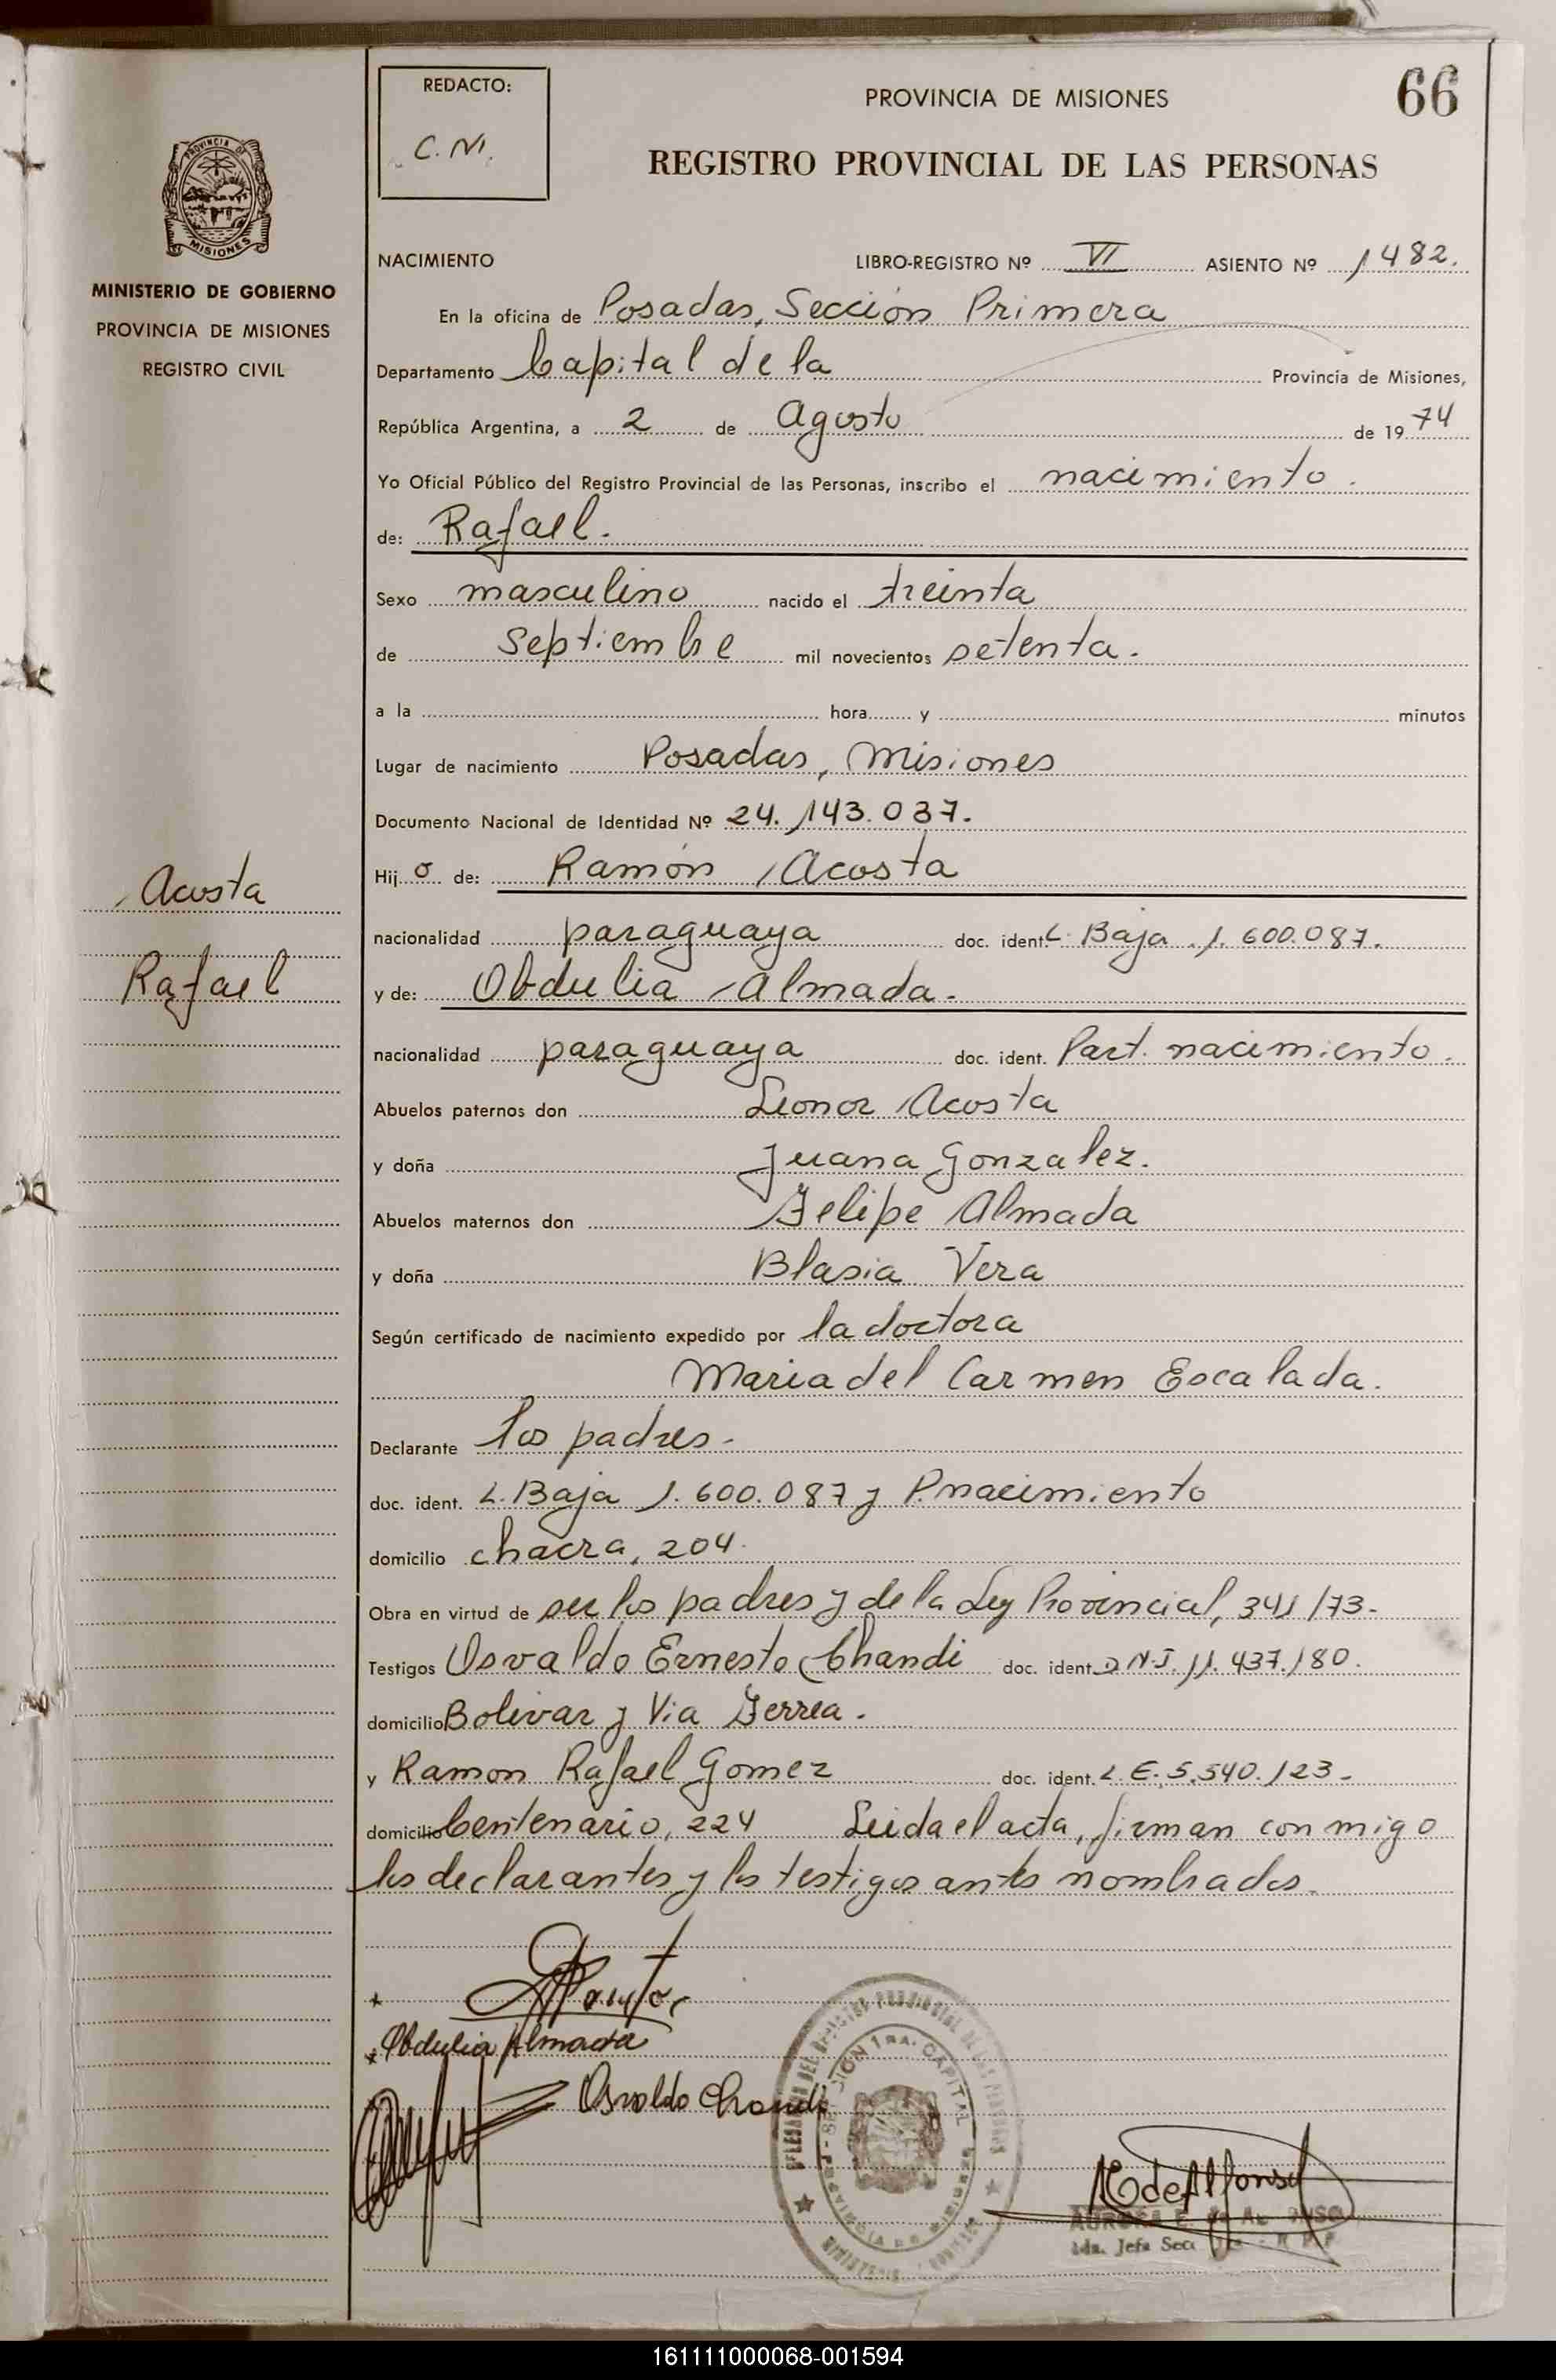 66
REDACTO:
C. N.
PROVINCIA DE MISIONES
REGISTRO PROVINCIAL DE LAS PERSONAS
PROVINCIA DE
MISIONES
MINISTERIO DE GOBIERNO
PROVINCIA DE MISIONES
REGISTRO CIVIL
Acosta
Rafael
NACIMIENTO LIBRO-REGISTRO Nº VI ASIENTO Nº 1482.
En la oficina de Posadas, Sección Primera
Departamento Capital de la Provincia de Misiones,
República Argentina, a 2 de Agosto de 1974
Yo Oficial Público del Registro Provincial de las Personas, inscribo el nacimiento.
de: Rafael.
Sexo masculino nacido el treinta
de Septiembre mil novecientos setenta.
a la hora y minutos
Lugar de nacimiento Posadas, Misiones
Documento Nacional de Identidad Nº 24.143.037.
Hijo de: Ramón Acosta
nacionalidad paraguaya doc. ident. L. Baja 1.600.087.
y de: Obdulia Almada.
nacionalidad paraguaya doc. ident. Part. nacimiento.
Abuelos paternos don Leonor Acosta
y doña Juana Gonzalez.
Abuelos maternos don Felipe Almada
y doña Blasia Vera
Según certificado de nacimiento expedido por la doctora
Maria del Carmen Escalada.
Declarante los padres-
doc. ident. L. Baja 1.600.087 y P. nacimiento
domicilio chacra, 204.
Obra en virtud de ser los padres y de la Ley Provincial, 341/73-
Testigos Osvaldo Ernesto Chandi doc. ident. D.N.I. 11.437.180.
domicilio Bolivar y Via Ferrea.
y Ramon Rafael Gomez doc. ident. L.E. 5.540.123-
domicilio Centenario, 224 Leida el acta, firman con migo
los declarantes y los testigos antes nombrados.
Obdulia Almada
Osvaldo Chandi
SECCION 1RA. CAPITAL
PROVINCIA DE MISIONES
de Alfonso
AURORA E. de ALFONSO
Jefa Secc.
161111000068-001594